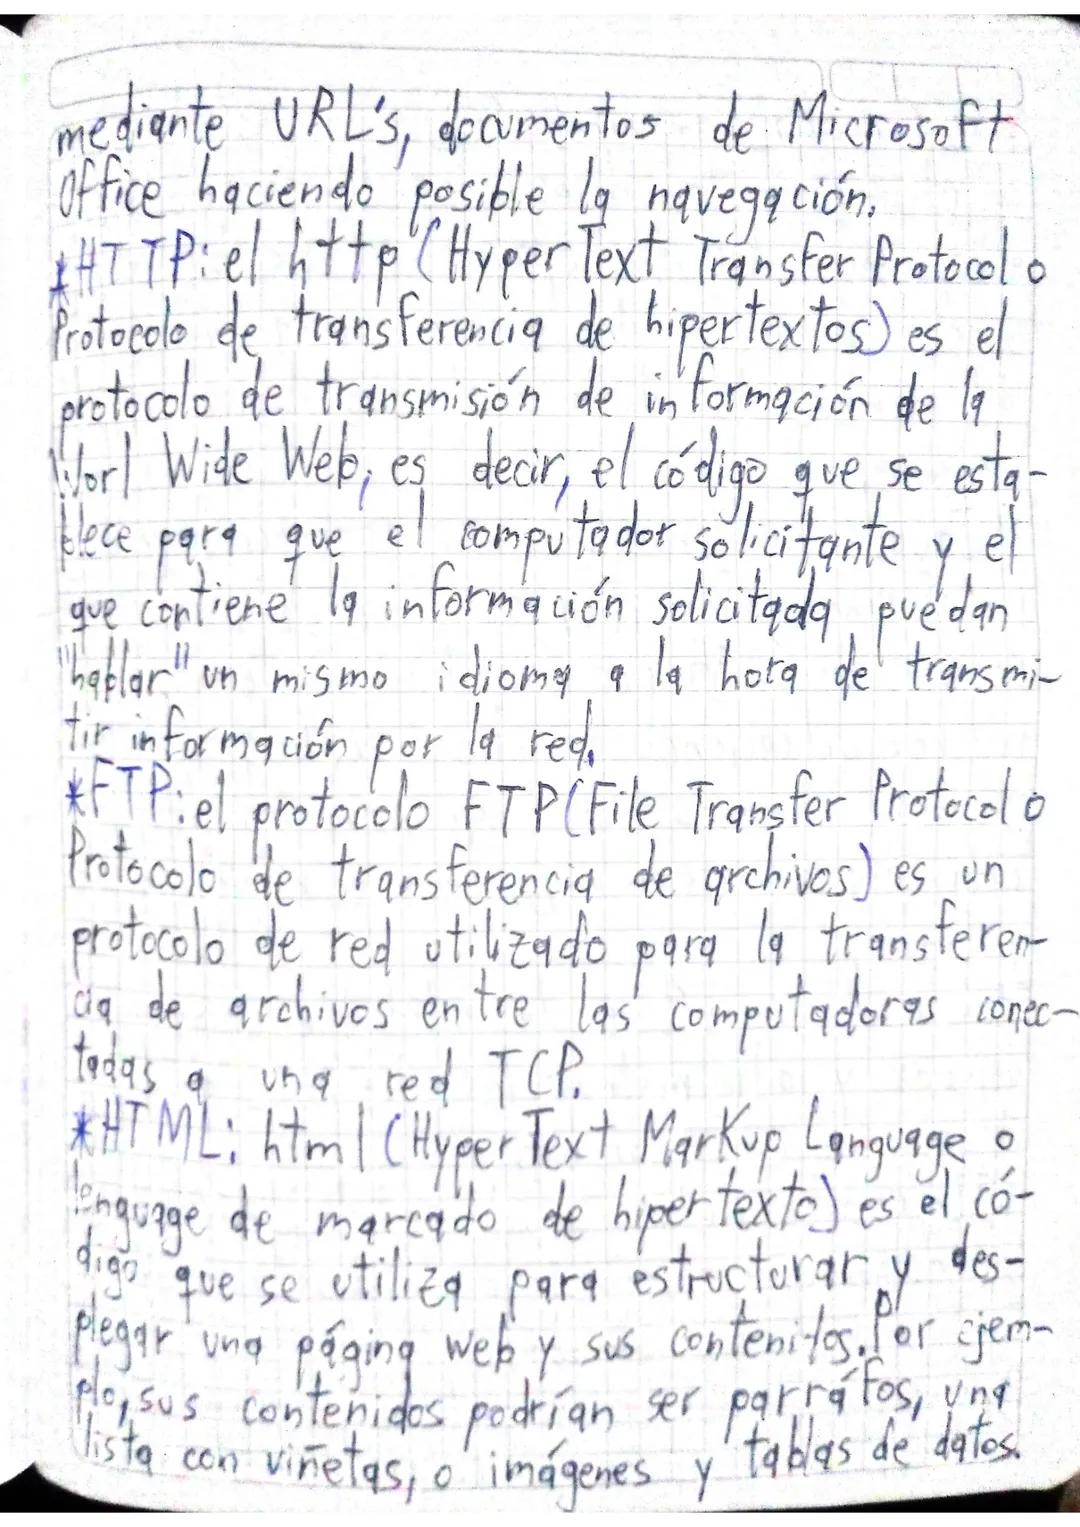 mediante URL's, documentos de Microsoft
Office haciendo posible la navegación.
*HTTP: el http (HyperText Transfer Protocol o
Protocolo de transferencia de hipertextos) es el
protocolo de transmisión de información de la
Worl Wide Web, es decir, el código que se esta-
blece para que el computador solicitante y el
que contiene la información solicitada puedan
"hablar" un mismo idioma a la hora de transmi-
tir información por la red.
*FTP: el protocolo FTP (File Transfer Protocol o
Protocolo de transferencia de archivos) es un
protocolo de red utilizado para la transferen-
cia de archivos entre las computadoras conec-
tadas a una red TCP.
*HTML: html (HyperText Markup Language o
lenguage de marcado de hipertexto) es el có-
digo que se utiliza para estructurar y des-
plegar una página web y sus contenidos. Por ejem-
plo, sus contenidos podrían ser parráfos, una
lista con viñetas, o imágenes y tablas de datos.